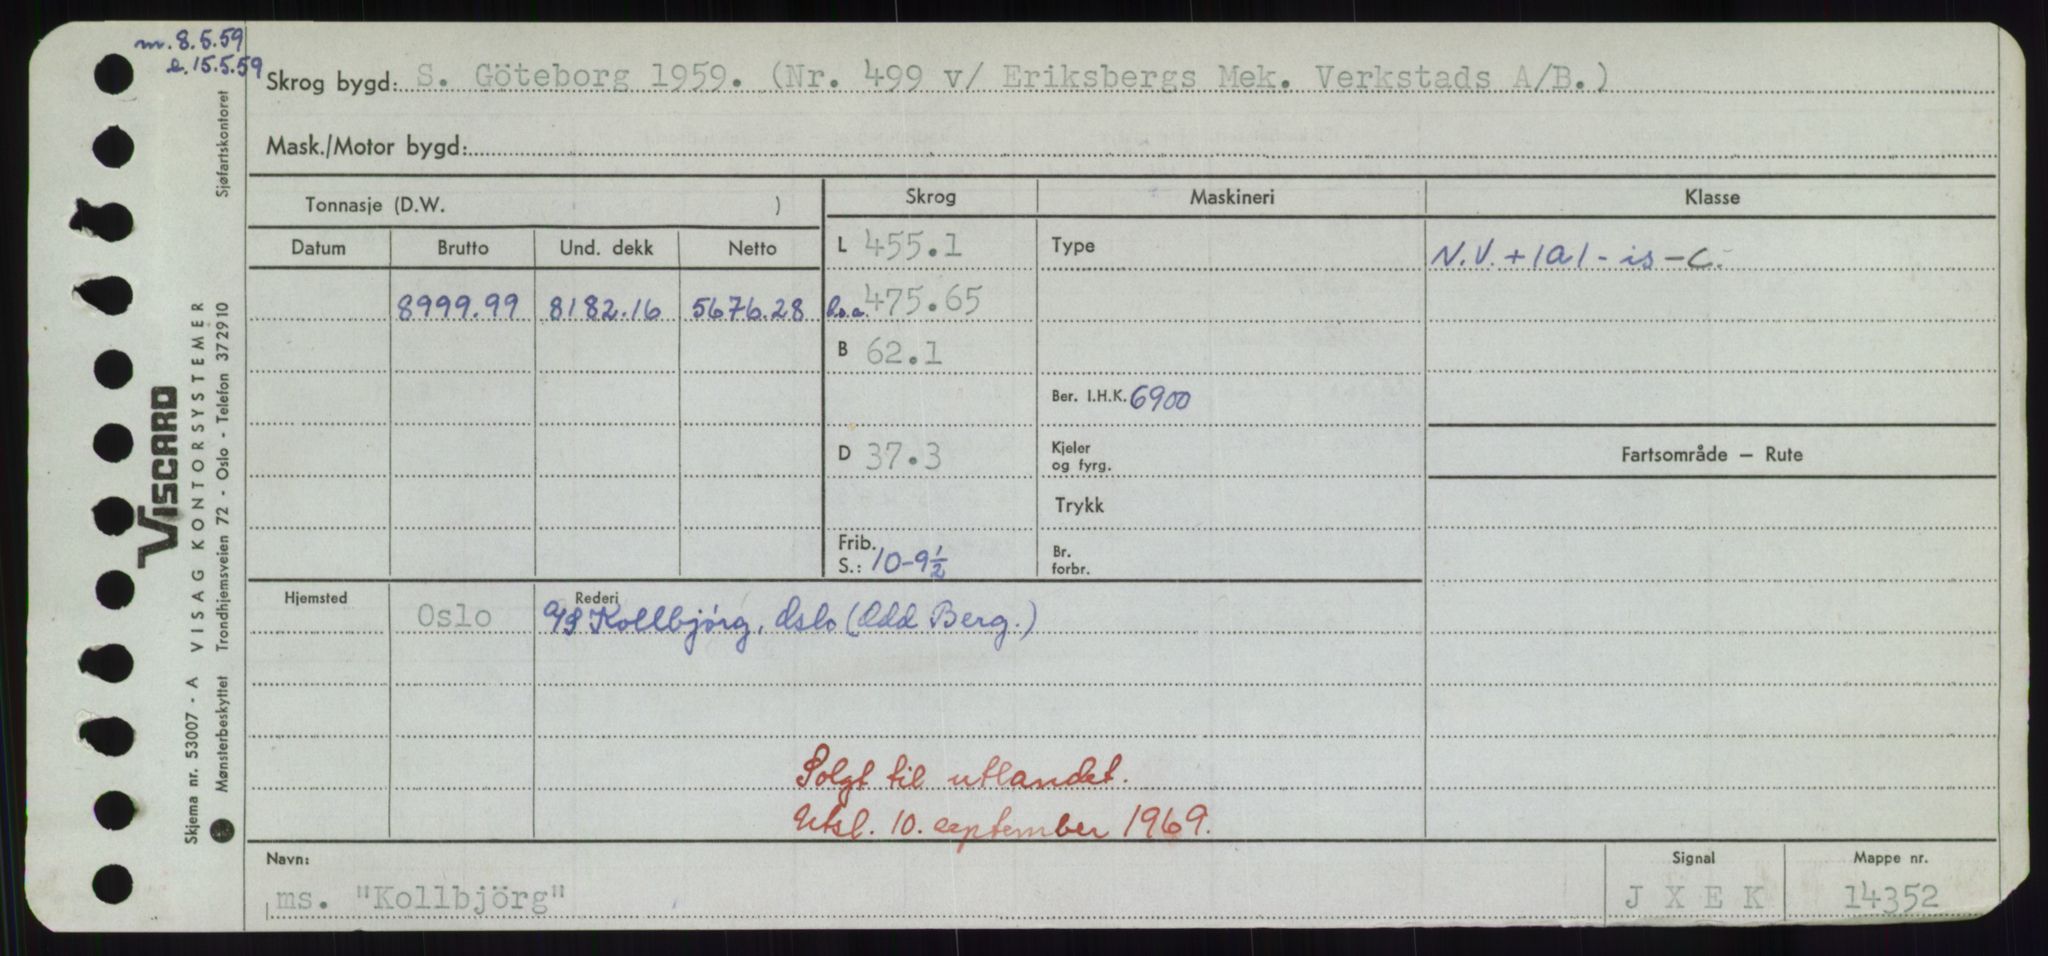 m. 8.5.59
e. 15.5.59
Skrog bygd: S. Göteborg 1959. (Nr. 499 v/ Eriksbergs Mek. Verkstads A/B.)
Mask./Motor bygd:
Tonnasje (D.W. )
Skrog
Maskineri
Klasse
Datum Brutto Und. dekk Netto
L 455.1
Type
N.V. + 1A1 - is - C.
8999.99 8182.16 5676.28
l.o.a. 475.65
B 62.1
Ber. I.H.K. 6900
D 37.3
Kjeler
og fyrg.
Fartsområde – Rute
Trykk
Frib.
S.: 10-9½
Br.
forbr.
Hjemsted
Oslo
Rederi
A/S Kollbjørg, Oslo (Odd Berg.)
Solgt til utlandet.
Utsl. 10. september 1969.
Navn:
ms. "Kollbjörg"
Signal
J X E K
Mappe nr.
14352
VISCARD
Skjema nr. 53007 - A VISAG KONTORSYSTEMER
Mønsterbeskyttet Trondhjemsveien 72 - Oslo - Telefon 372910 Sjøfartskontoret